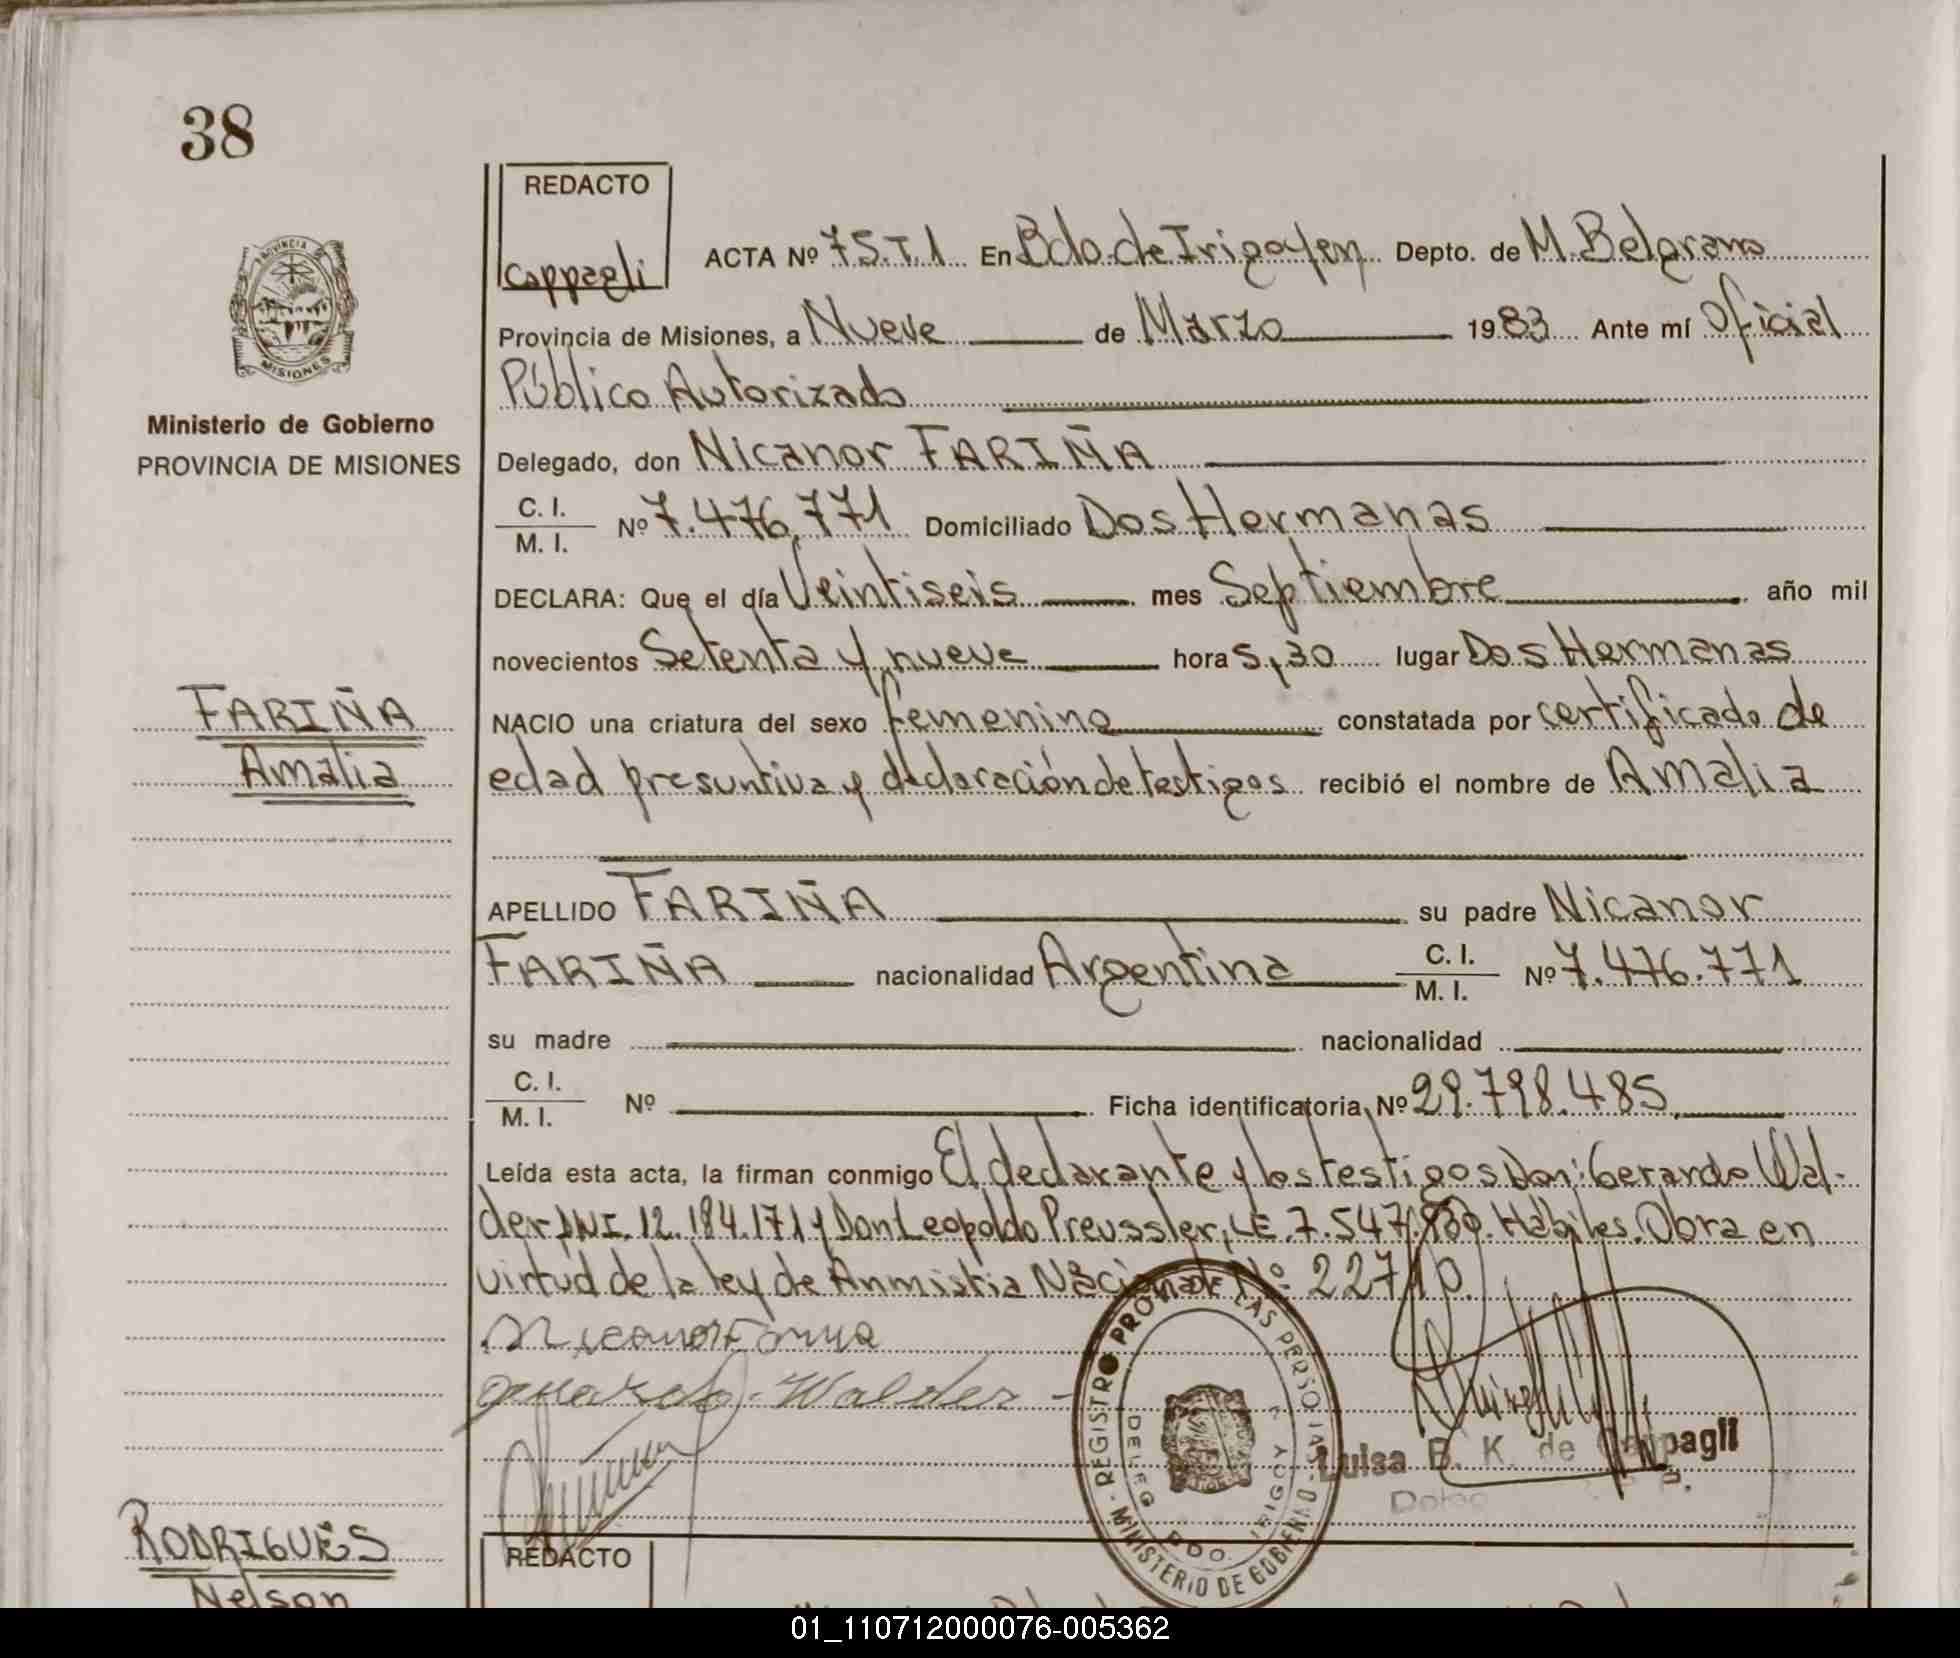 38
REDACTO
Cappagli
ACTA Nº 75.T.1 En Bdo. de Irigoyen Depto. de M. Belgrano
Provincia de Misiones, a Nueve de Marzo 1983 Ante mí Oficial
Público Autorizado
Delegado, don Nicanor FARIÑA
C. I.
M. I. Nº 7.476.771 Domiciliado Dos Hermanas
DECLARA: Que el día Veintiseis mes Septiembre año mil
novecientos Setenta y nueve hora 5,30 lugar Dos Hermanas
NACIO una criatura del sexo femenino constatada por certificado de
edad presuntiva y declaración de testigos recibió el nombre de Amalia
APELLIDO FARIÑA su padre Nicanor
FARIÑA nacionalidad Argentina C. I.
M. I. Nº 7.476.771
su madre nacionalidad
C. I.
M. I. Nº Ficha identificatoria Nº 29.798.485
Leída esta acta, la firman conmigo El declarante y los testigos Don: Gerardo Wal-
der DNI. 12.184.171 y Don Leopoldo Preussler, LE. 7.547. Hábiles. Obra en
virtud de la ley de Anmistia Nacional Nº 22710.
Nicanor Fariña
Gerardo Walder
Luisa B. K. de Cappagli
REGISTRO PROV. DE LAS PERSONAS
MINISTERIO DE GOBIERNO
DELEG
BDO. IRIGOY
PROVINCIA
MISIONES
Ministerio de Gobierno
PROVINCIA DE MISIONES
FARIÑA
Amalia
RODRIGUES
Nelson
REDACTO
01_110712000076-005362